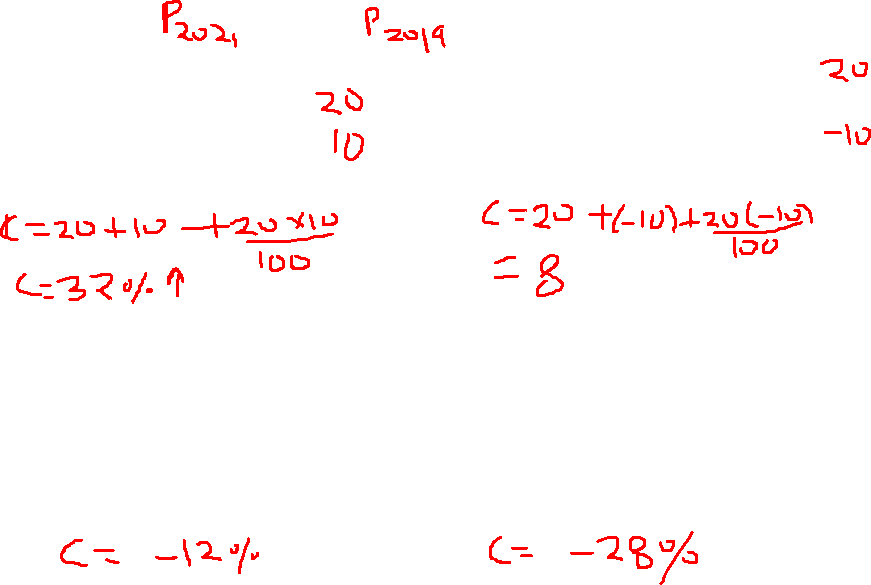 P2021 P2019
20
20
10
-10
C=20+10 +20×10/100
C=20 +(-10)+20(-10)/100
C=32%↑
=8
C= -12%
C= -28%